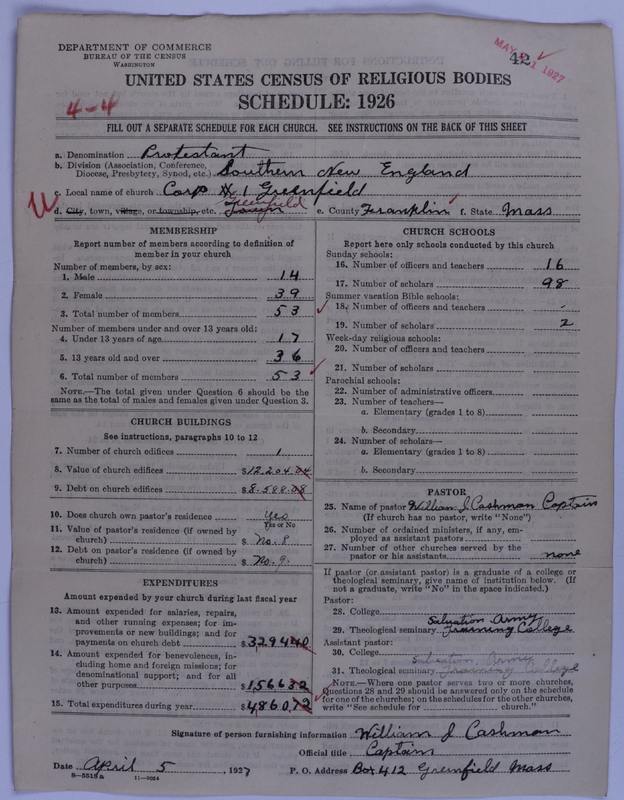 DEPARTMENT OF COMMERCE
BUREAU OF THE CENSUS
WASHINGTON
42
MAY 21 1927
UNITED STATES CENSUS OF RELIGIOUS BODIES
4-4
SCHEDULE: 1926
FILL OUT A SEPARATE SCHEDULE FOR EACH CHURCH. SEE INSTRUCTIONS ON THE BACK OF THIS SHEET
a. Denomination Protestant
b. Division (Association, Conference, Diocese, Presbytery, Synod, etc.) Southern New England
c. Local name of church Corp # 1 Greenfield
Greenfield
d. City, town, village, or township, etc. e. County Franklin f. State Mass
MEMBERSHIP
Report number of members according to definition of
member in your church
Number of members, by sex:
1. Male 14
2. Female 39
3. Total number of members 53
Number of members under and over 13 years old:
4. Under 13 years of age 17
5. 13 years old and over 36
6. Total number of members 53
NOTE.—The total given under Question 6 should be the
same as the total of males and females given under Question 3.
CHURCH BUILDINGS
See instructions, paragraphs 10 to 12
7. Number of church edifices 1
8. Value of church edifices $12,204.04
9. Debt on church edifices $8,588.08
10. Does church own pastor's residence Yes
Yes or No
11. Value of pastor's residence (if owned by
church) $ No. 8
12. Debt on pastor's residence (if owned by
church) $ No. 9
EXPENDITURES
Amount expended by your church during last fiscal year
13. Amount expended for salaries, repairs,
and other running expenses; for im-
provements or new buildings; and for
payments on church debt $329440
14. Amount expended for benevolences, in-
cluding home and foreign missions; for
denominational support; and for all
other purposes $156632
15. Total expenditures during year $486072
CHURCH SCHOOLS
Report here only schools conducted by this church
Sunday schools:
16. Number of officers and teachers 16
17. Number of scholars 98
Summer vacation Bible schools:
18. Number of officers and teachers -
19. Number of scholars 2
Week-day religious schools:
20. Number of officers and teachers
21. Number of scholars
Parochial schools:
22. Number of administrative officers
23. Number of teachers—
a. Elementary (grades 1 to 8)
b. Secondary
24. Number of scholars—
a. Elementary (grades 1 to 8)
b. Secondary
PASTOR
25. Name of pastor William J Cashman Captain
(If church has no pastor, write "None")
26. Number of ordained ministers, if any, em-
ployed as assistant pastors
27. Number of other churches served by the
pastor or his assistants none
If pastor (or assistant pastor) is a graduate of a college or
theological seminary, give name of institution below. (If
not a graduate, write "No" in the space indicated.)
Pastor:
28. College
Salvation Army
29. Theological seminary Training College
Assistant pastor:
30. College
Salvation Army
31. Theological seminary Training College
NOTE.—Where one pastor serves two or more churches,
Questions 28 and 29 should be answered only on the schedule
for one of the churches; on the schedules for the other churches,
write "See schedule for church."
Signature of person furnishing information William J Cashman
Official title Captain
Date April 5, 1927 P. O. Address Box 412 Greenfield Mass
8-5518a 11-9024